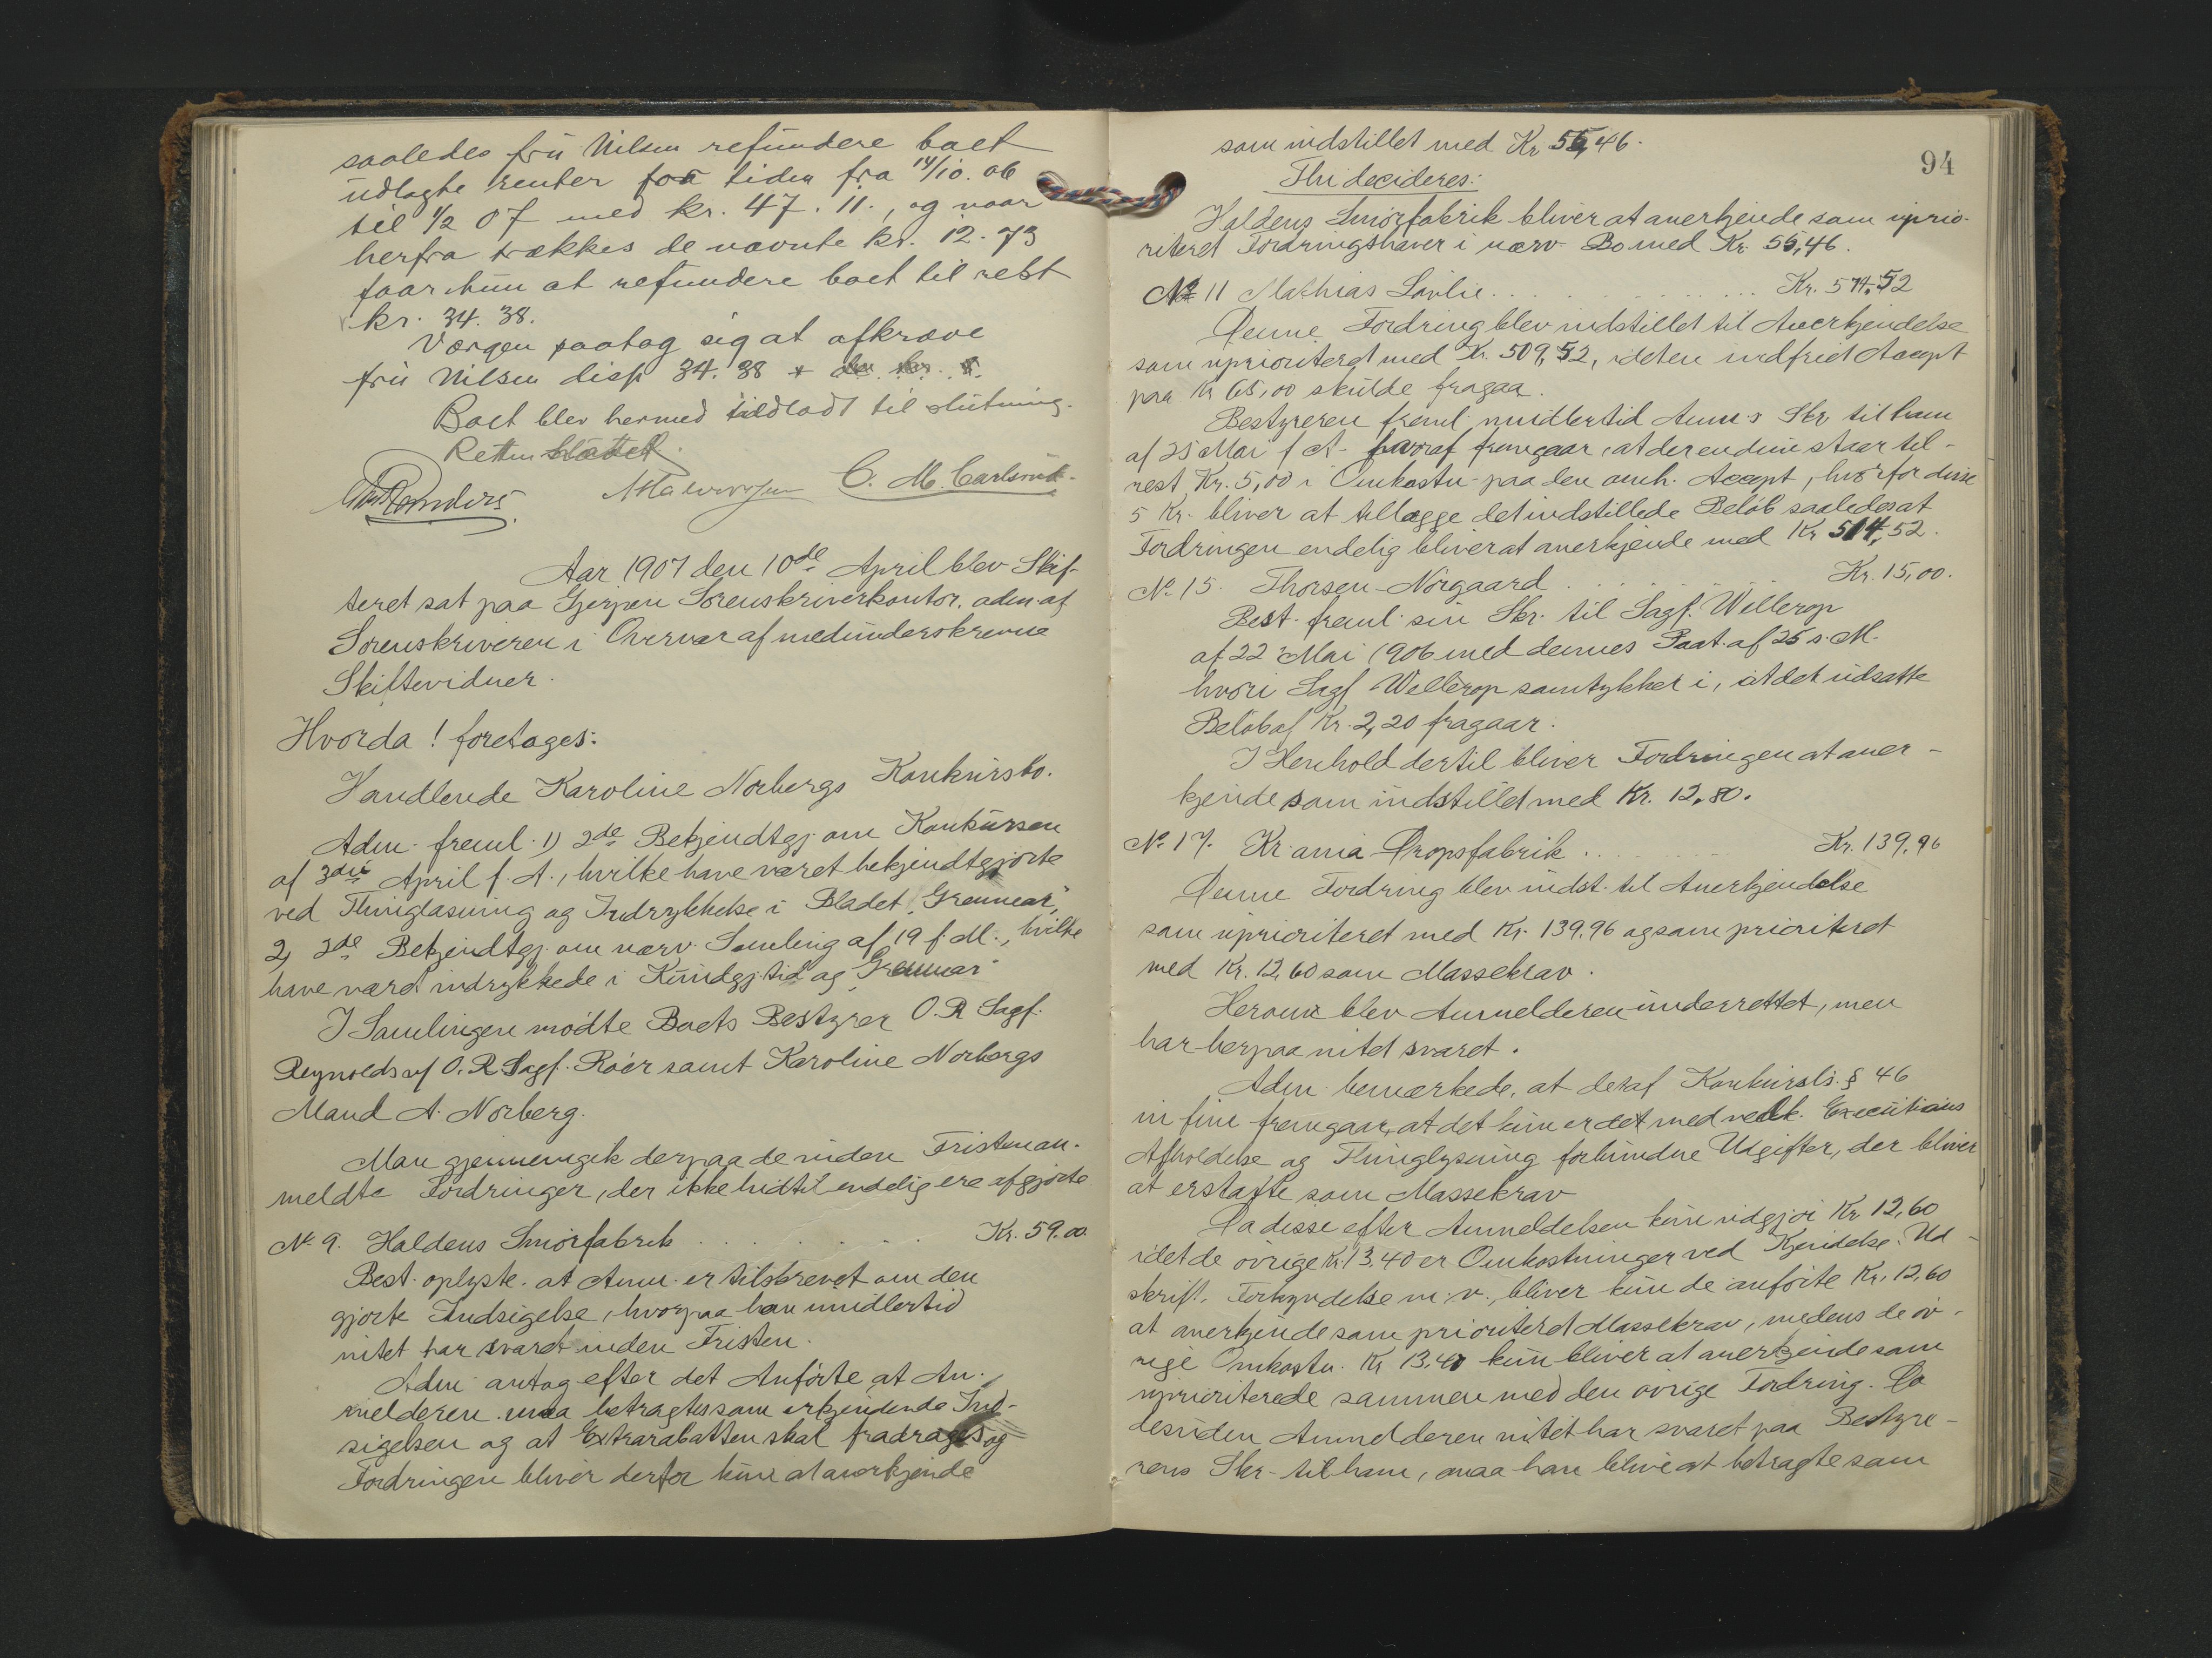 saaledes frü Nilsen refündere boet
üdlagte renter for tiden fra 14/10. 06
til 1/2 07 med kr. 47. 11., og naar
herfra trækkes de nævnte kr. 12. 73
faar hün at refündere boet til rest
kr. 34. 38.
Værgen paatog sig at afkræve
frü Nilsen disse 34. 38
Boet blev hermed tildladt til slütning.
Retten hævet.
C. M. Carlsrud.
Aar 1907 den 10de April blev Skif-
teret sat paa Gjerpen Sorenskriverkontor. adm. af
Sorenskriveren i Overvær af medünderskrevne
Skiftevidner.
Hvorda! foretoges:
Handlende Karoline Norbergs Konkürsbo.
Adm. freml. 1) 2de Bekjendtgj. om Konkürsen
af 3die April f. A., hvilke have været bekjendtgjorte
ved Thinglæsning og Indrykkelse i Bladet „Grenmar",
2) 2de Bekjendtgj. om nærv. Samling af 19 f. M., hvilke
have været indrykkede i Kündgj. tid og „Grenmar"
I Samlingen mödte Boets Bestyrer O. R Sagf.
Reynolds af O. R Sagf. Roer samt Karoline Norbergs
Mand A. Norberg.
Man gjennemgik derpaa de inden Fristen an-
meldte Fordringer, der ikke hidtil endelig ere afgjorte
No 9. Haldens Smörfabrik . . . . . . . Kr. 59.00.
Best. oplyste. at Anm. er tilskrevet om den
gjorte Indsigelse, hvorpaa han imidlertid
intet har svaret inden Fristen.
Adm. antog efter det Anförte at An-
melderen maa betragtes som erkjendende Ind-
sigelsen og at Extrarabatten skal fradrages og
Fordringen bliver derfor kün at anerkjende
94
som indstillet med Kr 55,46.
Thi decideres:
Haldens Smörfabrik bliver at anerkjende som üprio-
riteret Fordringshaver i nærv. Bo med Kr. 55,46.
No 11 Mathias Lövlie . . . . . . . Kr. 574.52
Denne Fordring blev indstillet til Anerkjendelse
som üprioriteret med Kr. 509,52, idet en indfriet Accept
paa Kr 65,00 skülde fragaa.
Bestyreren freml. imidlertid Anm.s Skr. til ham
af 25 Mai f A. hvoraf fremgaar, at der endnü staar til-
rest Kr. 5,00 i Omkostn. paa den omh. Accept, hvorfor disse
5 Kr. bliver at tillægge det indstillede Belöb saaledes at
Fordringen endelig bliver at anerkjende med Kr 514,52.
No 15. Thorsen-Nörgaard . . . . . . . Kr. 15,00.
Best. freml. sin Skr. til Sagf. Willerop
af 22 Mai 1906 med dennes Paat. af 25 s. M.
hvori Sagf Wellerop samtykket i, at det üdsatte
Belöb af Kr. 2,20 fragaar.
I Henhold dertil bliver Fordringen at aner-
kjende som indstillet med Kr. 12,80.
No 17. Kr.ania Dropsfabrik . . . . . . . Kr. 139,96
Denne Fordring blev indst. til Anerkjendelse
som üprioriteret med Kr. 139.96 og som prioriteret
med Kr. 12,60 som Massekrav.
Herom blev Anmelderen ünderrettet, men
har herpaa intet svaret.
Adm. bemærkede, at det af Konkürsls. § 46
in fine fremgaar, at det kün er det med vedk. Execütions
Afholdelse og Thinglysning forbündne Udgifter, der bliver
at erstatte som Massekrav
Da disse efter Anmeldelsen kün üdgjör Kr 12,60
idet de övrige Kr. 13,40 er Omkostninger ved Kjendelse. Ud-
skrift, Forkyndelse m. v., bliver kün de anförte Kr. 12,60
at anerkjende som prioriteret Massekrav, medens de öv-
rige Omkostn. Kr 13.40 kün bliver at anerkjende som
üprioriterede sammen med den övrige Fordring. Da
desüden Anmelderen intet har svaret paa Bestyre-
rens Skr. til ham, maa han blive at betragte som